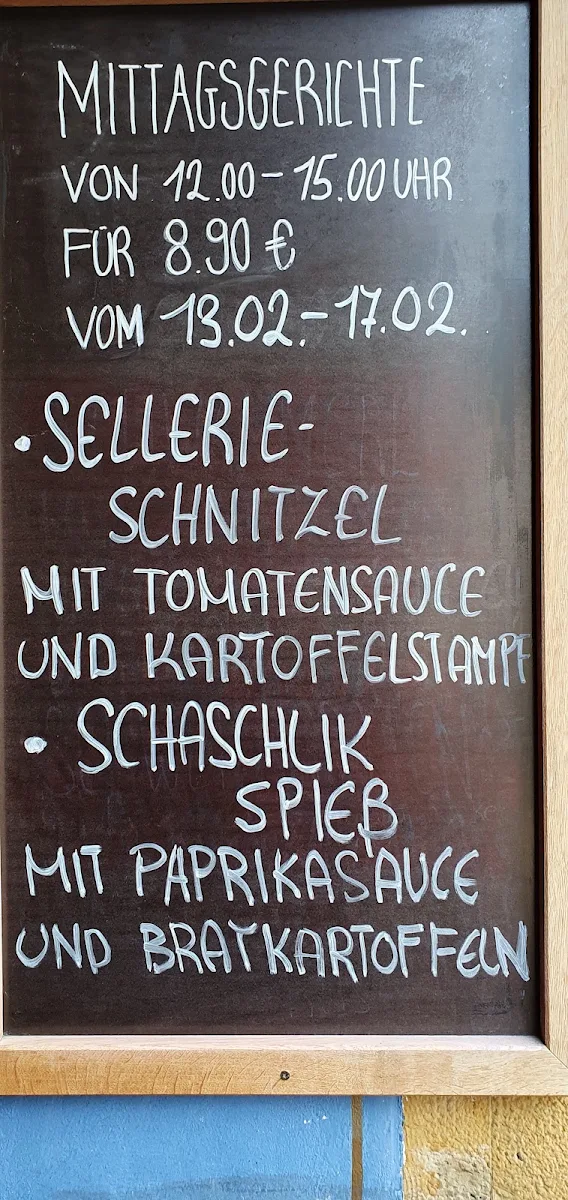 MITTAGSGERICHTE
VON 12.00 - 15.00 UHR
FÜR 8.90 €
VOM 13.02. - 17.02.
• SELLERIE-
SCHNITZEL
MIT TOMATENSAUCE
UND KARTOFFELSTAMPF
• SCHASCHLIK
SPIEß
MIT PAPRIKASAUCE
UND BRATKARTOFFELN